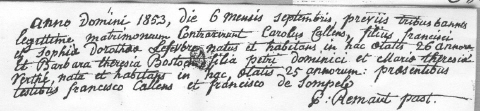 Anno Domini 1853, die 6 mensis septembris, previis tribus bannis
legittime matrimonium Contraxerunt Carolus Callens, filius francisci
et Sophia Dorothea Lefevbre natus et habitans in hac ætatis 26 annorum
et Barbara theresia filia petri dominici et Maria theresia
nata et habitans in hac, ætatis 25 annorum. præsentibus
testibus francisco Callens et francisco de
Remaut past.